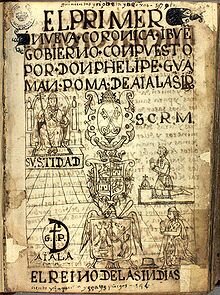 EL PRIMER
NVEVA CORONICA I BVE
GOBIERNO CONPVESTO
POR DON PHELIPE GVA
MAN POMA DE AIALA
S.C.R.M.
SVSTIDAD
AIALA
EL REINO DE LAS INDIAS